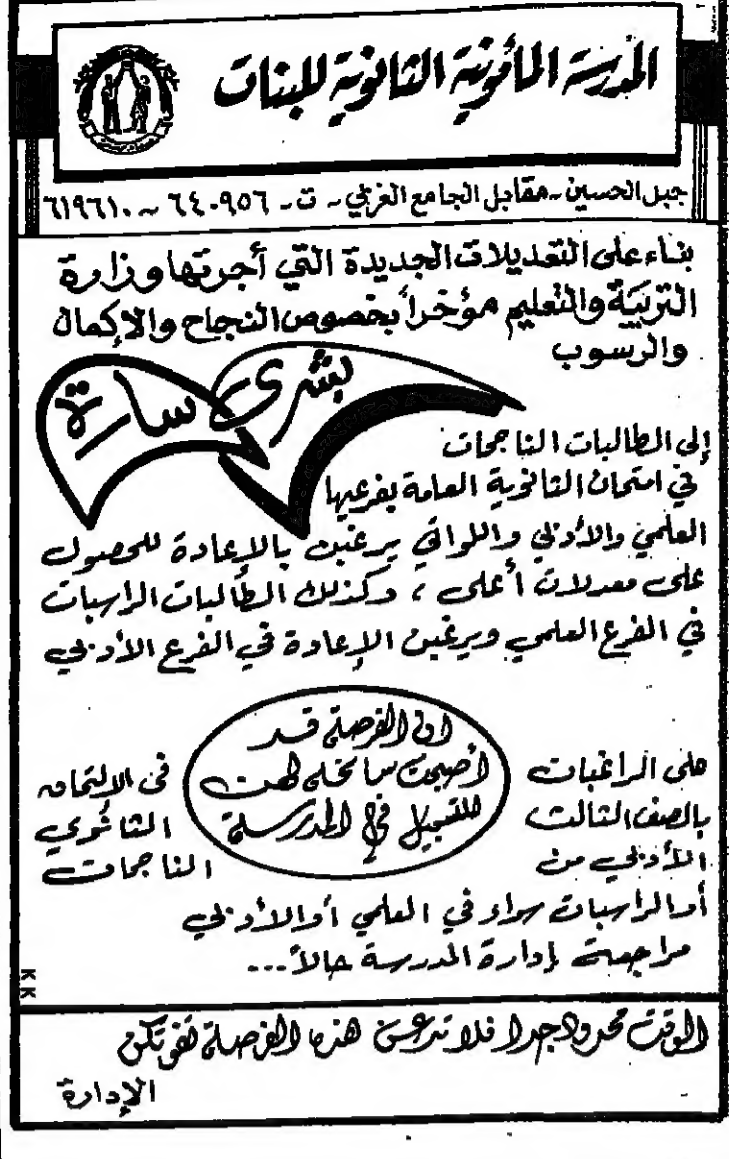 المدرسة المأمونية الثانوية للبنات
جبل الحسين - مقابل الجامع الغربي - ت - ٦٤٠٩٥٦ ~ ٦١٩٦١٠
بناء على التعديلات الجديدة التي أجرتها وزارة
التربية والتعليم مؤخراً بخصوص النجاح والإكمال
والرسوب
بشرى سارة
إلى الطالبات الناجحات
في امتحان الثانوية العامة بفرعيها
العلمي والأدبي واللواتي يرغبن بالإعادة للحصول
على معدلات أعلى ، وكذلك الطالبات الراسبات
في الفرع العلمي ويرغبن الإعادة في الفرع الأدبي
ان الفرصة قد
أصبحت سانحة لهن
للتسجيل في المدرسة
على الراغبات في الالتحاق
بالصف الثالث الثانوي
الأدبي من الناجحات
أو الراسبات سواء في العلمي أو الأدبي
مراجعة إدارة المدرسة حالاً...
KK
الوقت محدود جدا فلا تدعن هذه الفرصة تفوتكن
الإدارة